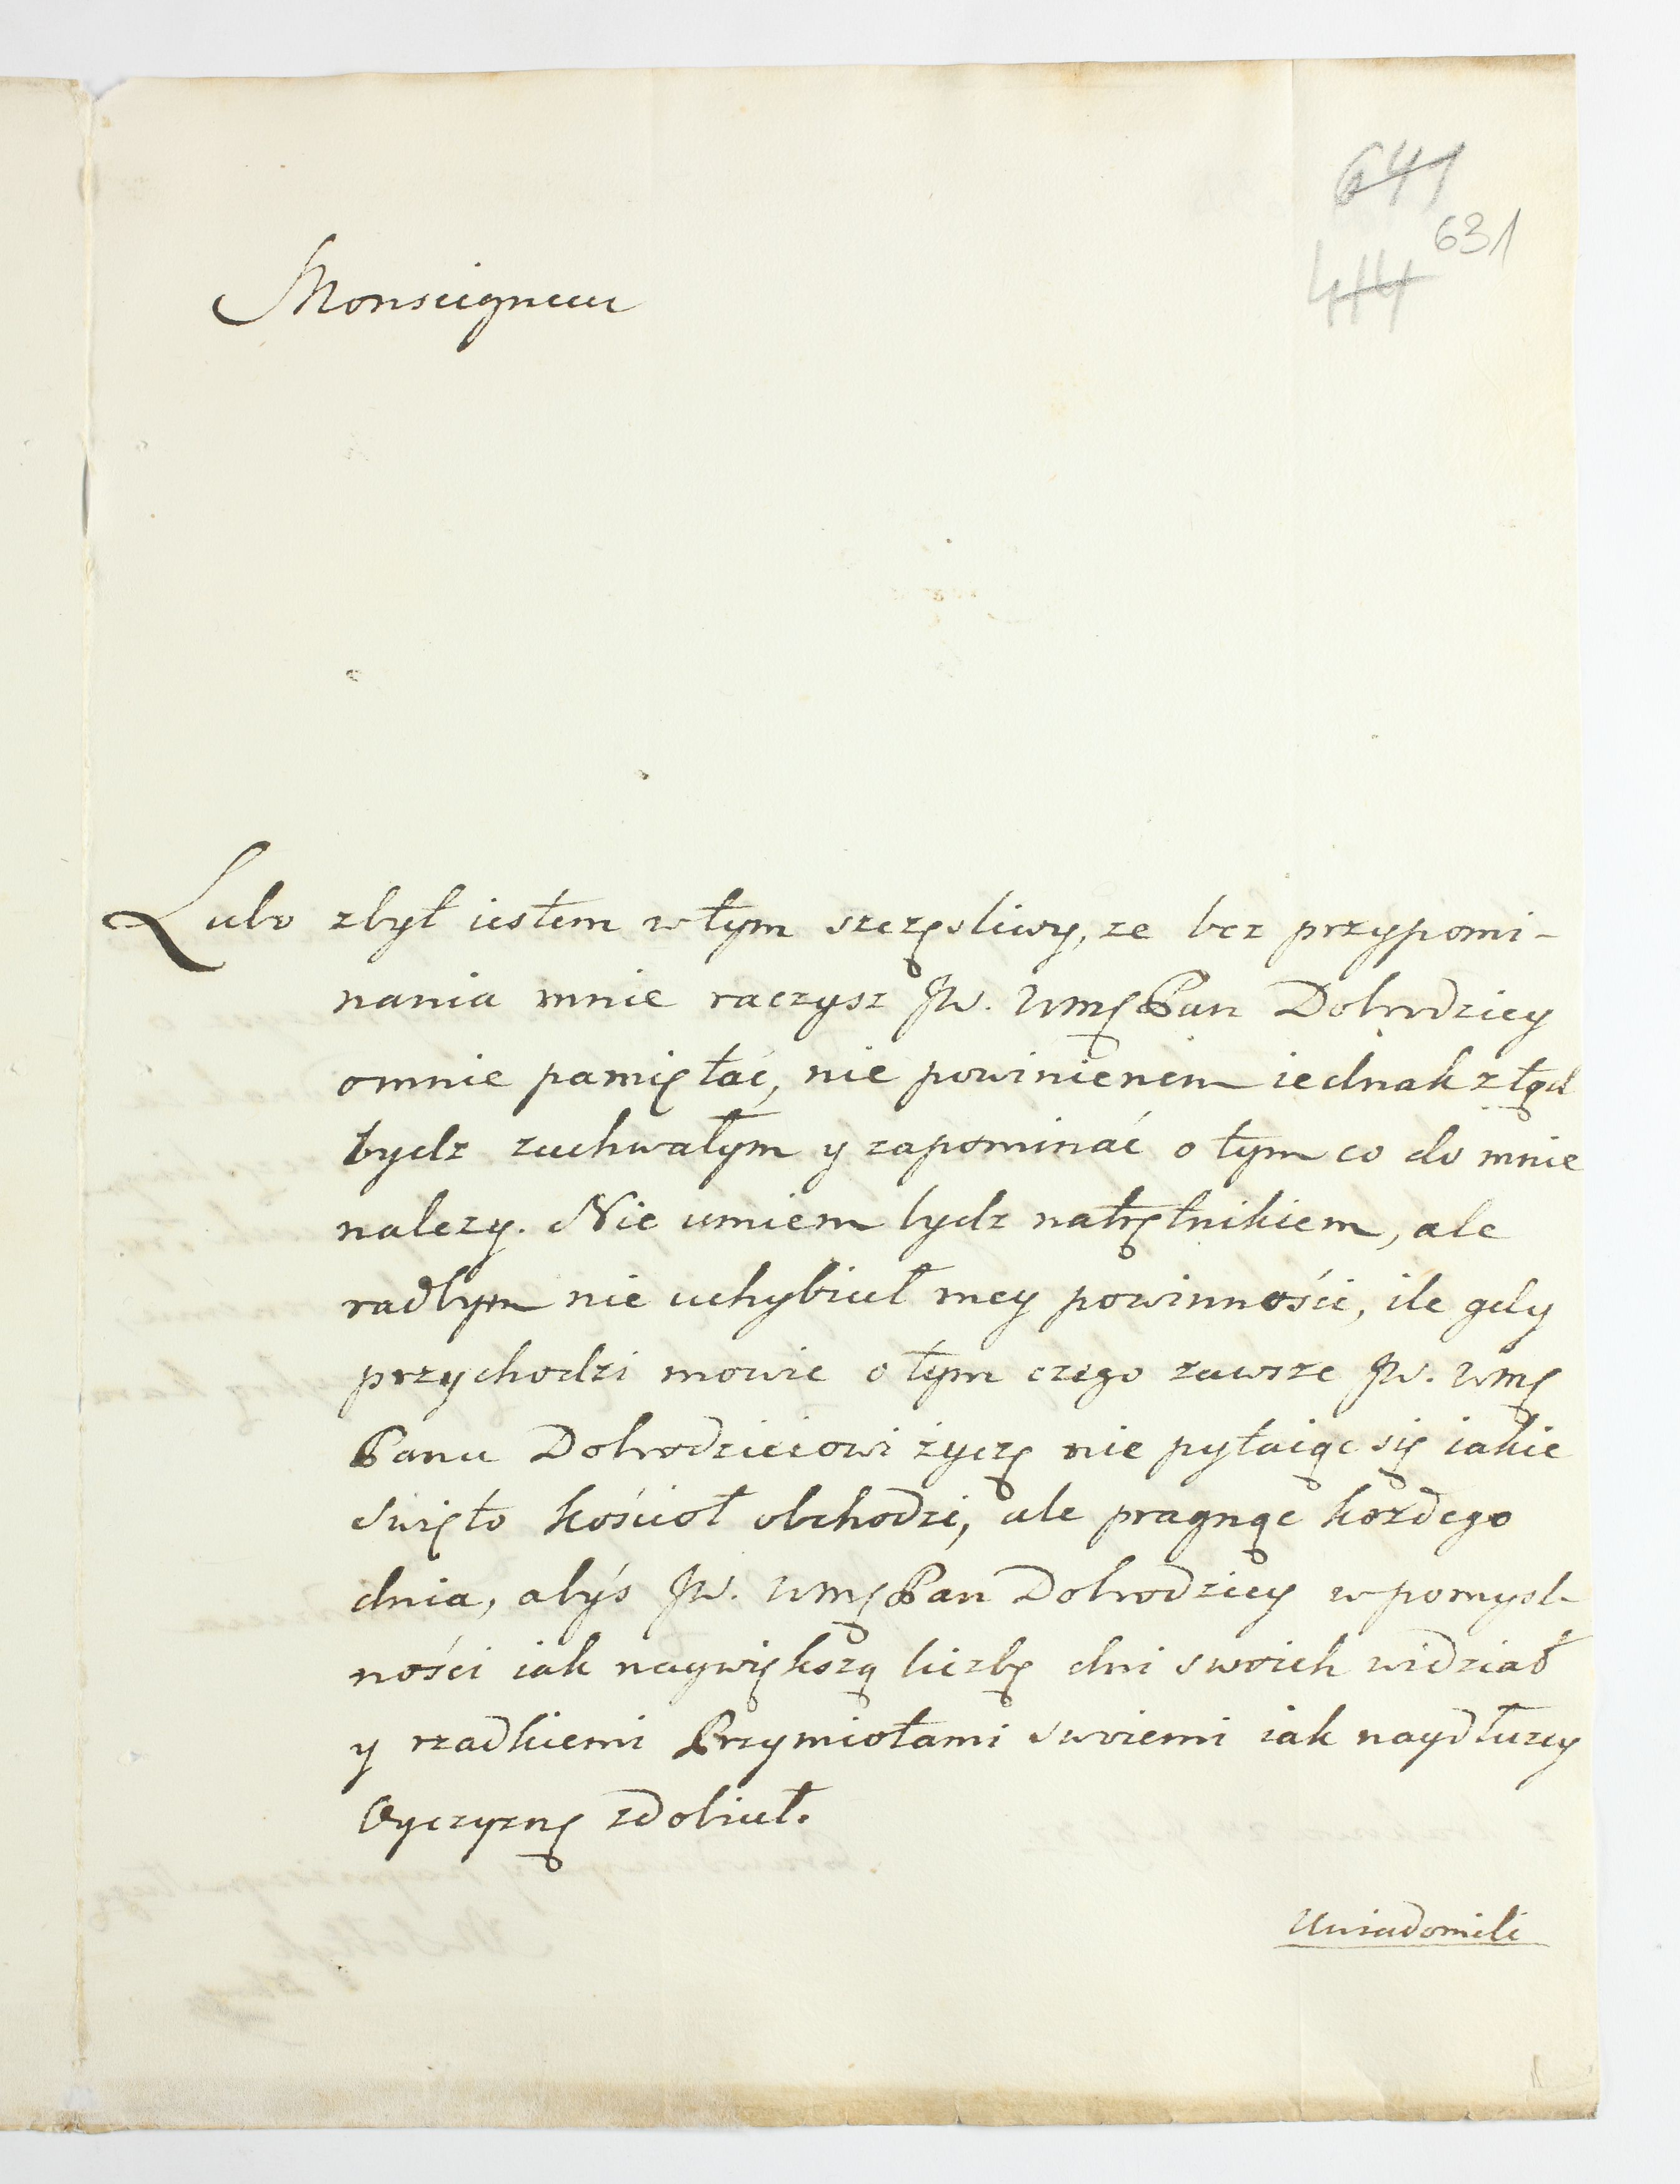 641
631
414
Monseigneur
Lubo zbyt iestem w tym szczęsliwy, ze bez przypomi-
nania mnie raczysz JW. WMę Pan Dobrodziey
omnie pamiętać, nie powinienem iednak ztąd
bydz zuchwałym y zapominać o tym co do mnie
nalezy. Nie umiem bydz natrętnikiem, ale
radbym nie uchybiuł mey powinności, ile gdy
przychodzi mowic o tym czego zawsze JW. WMę
Panu Dobrodzieiowi życzę nie pytaiąc się iakie
swięto kościoł obchodzi, ale pragnąc kozdego
dnia, abyś JW. WMę Pan Dobrodziey w pomysl-
ności iak naywiększą liczbę dni swoich widział
y rzadkiemi Przymiotami swoiemi iak naydłuzey
Oyczyznę zdobiuł.
Uwiadomili